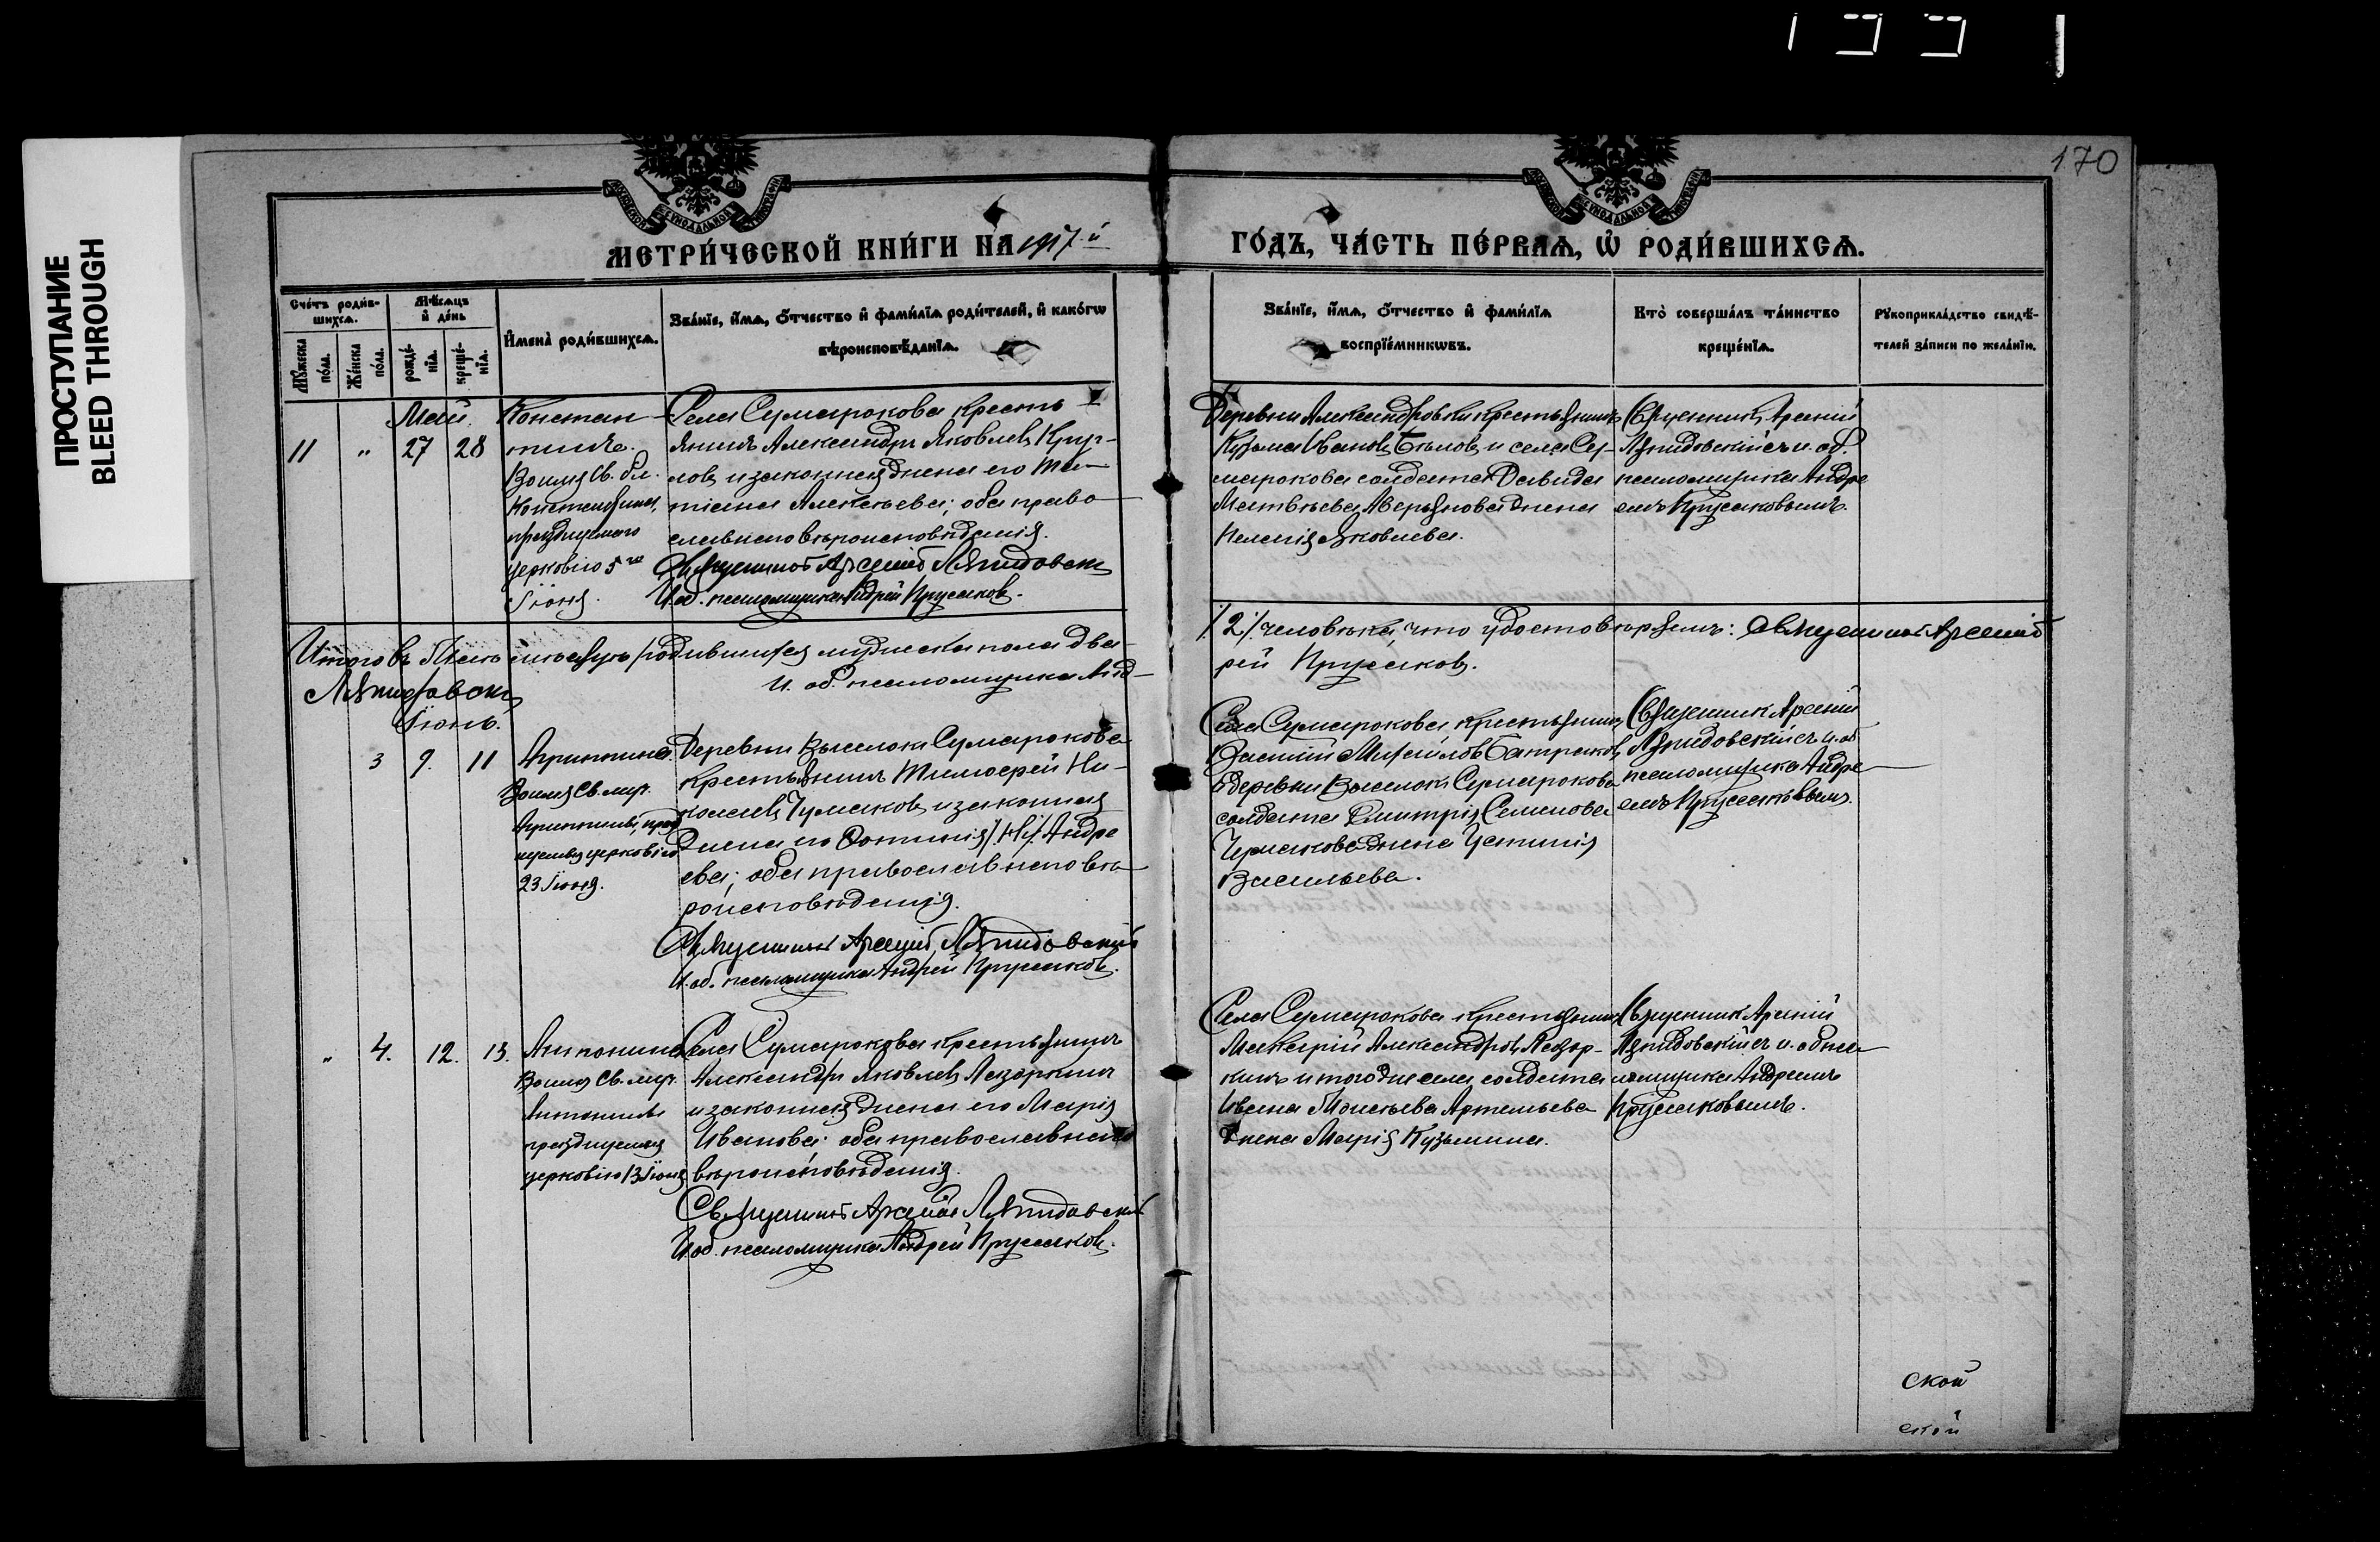 ПРОСТУПАНИЕ
BLEED THROUGH
170
МЕТРИ́ЧЕСКОЙ КНИ́ГИ НА 1917 й
ГО́ДЪ, ЧА́СТЬ ПЕ́РВАѦ, Ѡ҆ РОДИ́ВШИХСѦ.
Сче́тъ роди́в-
шихсѧ.
Мѣ́сѧцъ
и҆ де́нь
Мꙋ́жеска
по́ла.
Же́нска
по́ла.
рожде́-
нїѧ.
креще́-
нїѧ.
И҆мена̀ роди́вшихсѧ.
Зва́нїе, и҆́мѧ, ѻ҆́тчество и҆ фами́лїѧ роди́телей, и҆ како́гѡ
вѣроисповѣ́данїѧ.
Зва́нїе, и҆́мѧ, ѻ҆́тчество и҆ фами́лїѧ
воспрїе́мникѡвъ.
Кто̀ соверша́лъ та́инство
креще́нїѧ.
Рꙋкоприкла́дство свидѣ́-
телей за́писи по жела́нїю.
Май.
11 " 27 28
Констан-
тинъ.
Во имя св. бл.
Константина,
празднуемаго
церковію 5 го
Іюня.
Села Сумарокова кресть-
янинъ Александръ Яковлевъ Круг-
ловъ и законная жена его Та-
тіана Алексѣева; оба право-
славнаго вѣроисповѣданія.
Священникъ Арсеній Ляпидовскій
И. об. псаломщика Андрей Прусаковъ.
Деревни Александровки крестьянинъ
Кузьма Ивановъ Бѣловъ и села Су-
марокова солдата Давида
Матвѣева Аверьянова жена
Пелагія Яковлева.
Священникъ Арсеній
Ляпидовскій съ и. об.
псаломщика Андре-
емъ Прусаковымъ.
Итого въ Маѣ мѣсяцѣ родившихся мужеска пола два
/2/ человѣка, что удостовѣряемъ: Священникъ Арсеній
Ляпидовскій
И. об. псаломщика Анд-
рей Прусаковъ.
Іюнь.
3 9. 11
Агриппина.
Во имя св. муч.
Агриппины, празд
нуемыя церковію
23 Іюня.
Деревни Выселокъ Сумарокова
крестьянинъ Тимофей Ни-
колаевъ Чумаковъ и законная
жена его /Н/ Андре
ева; оба православнаго вѣ-
роисповѣданія.
Священникъ Арсеній Ляпидовскій
И. об. псаломщика Андрей Прусаковъ.
Села Сумарокова, крестьянинъ
Василій Михайловъ Батраковъ
и деревни Выселокъ Сумарокова
солдата Димитрія Семенова
Чумакова жена Устинія
Васильева.
Священникъ Арсеній
Ляпидовскій съ и. об
псаломщика Андре-
емъ Прусаковымъ.
" 4. 12. 13.
Антонина
Во имя св. муч.
Антонины
празднуемыя
церковію 13 Іюня
Села Сумарокова крестьянинъ
Александръ Яковлевъ Назаркинъ
и законная жена его Марія
Иванова; оба православнаго
вѣроисповѣданія.
Священникъ Арсеній Ляпидовскій
И. об. псаломщика Андрей Прусаковъ.
Села Сумарокова крестьянинъ
Макарій Александровъ Назар-
кинъ и того же села солдата
Ивана Моисѣева Артемьева
жена Марія Кузьмина.
Священникъ Арсеній
Ляпидовскій съ и. об пса-
ломщика Андреемъ
Прусаковымъ.
ской
ской